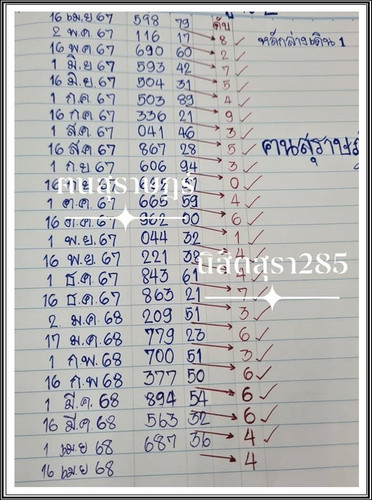 16 เม.ย.67 598 79 ดับ
2 พ.ค 67 116 17 8 ✓ หลักล่างเดิน 1
16 พ.ค 67 690 60 2 ✓
1 มิ.ย 67 593 42 7 ✓
16 มิ.ย 67 504 31 5 ✓
1 ก.ค 67 503 89 4 ✓
16 ก.ค 67 336 21 9 ✓
1 ส.ค 67 041 46 3 ✓
16 ส.ค 67 867 28 5 ✓ คนสุราษฎ
1 ก.ย 67 606 94 3 ✓
16 0 ✓
1 ต.ค 67 665 59 4 ✓
16 ต.ค 67 962 00 6 ✓
1 พ.ย.67 044 32 1 ✓
16 พ.ย. 67 221 38 4 ✓
นิสัดสุรา285
1 ธ.ค 67 843 61 ✓
16 ธ.ค. 67 863 21 7 ✓
2 ม.ค 68 209 51 3 ✓
17 ม.ค. 68 779 23 6 ✓
1 ก.พ. 68 700 51 3 ✓
16 ก.พ 68 377 50 6 ✓
1 มี.ค. 68 894 54 6 ✓
16 มี.ค 68 563 32 6 ✓
1 เม.ย 68 687 36 4 ✓
16 เม.ย 68 4